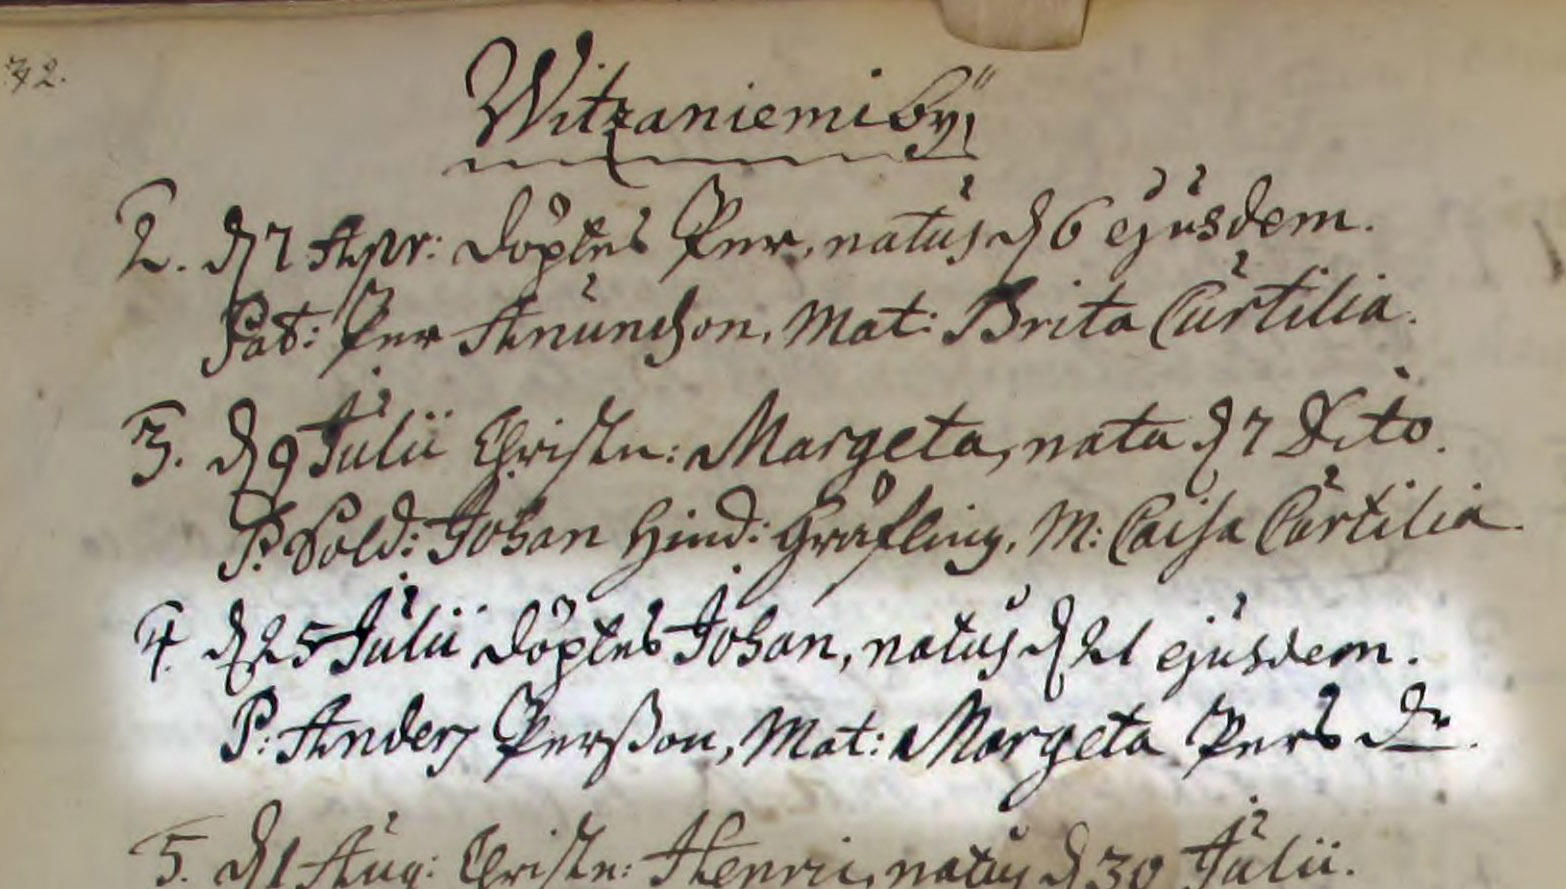 32.
Witzaniemi by
2. d 7 Apr: döptes Per, natus d 6 ejusdem.
Pat: Per Anundson, Mat: Brita Curtilia.
3. d 9 Julii Christn: Margeta, nata d 7 Dito.
P: Sold: Johan Hind: Gräfling, M: Caisa Curtilia
4. d 25 Julii döptes Johan, natus d 21 ejusdem.
P: Anders Perßon, Mat: Margeta Pers dr.
5. d 1 Aug: Christn: Henric, natus d 30 Julii.